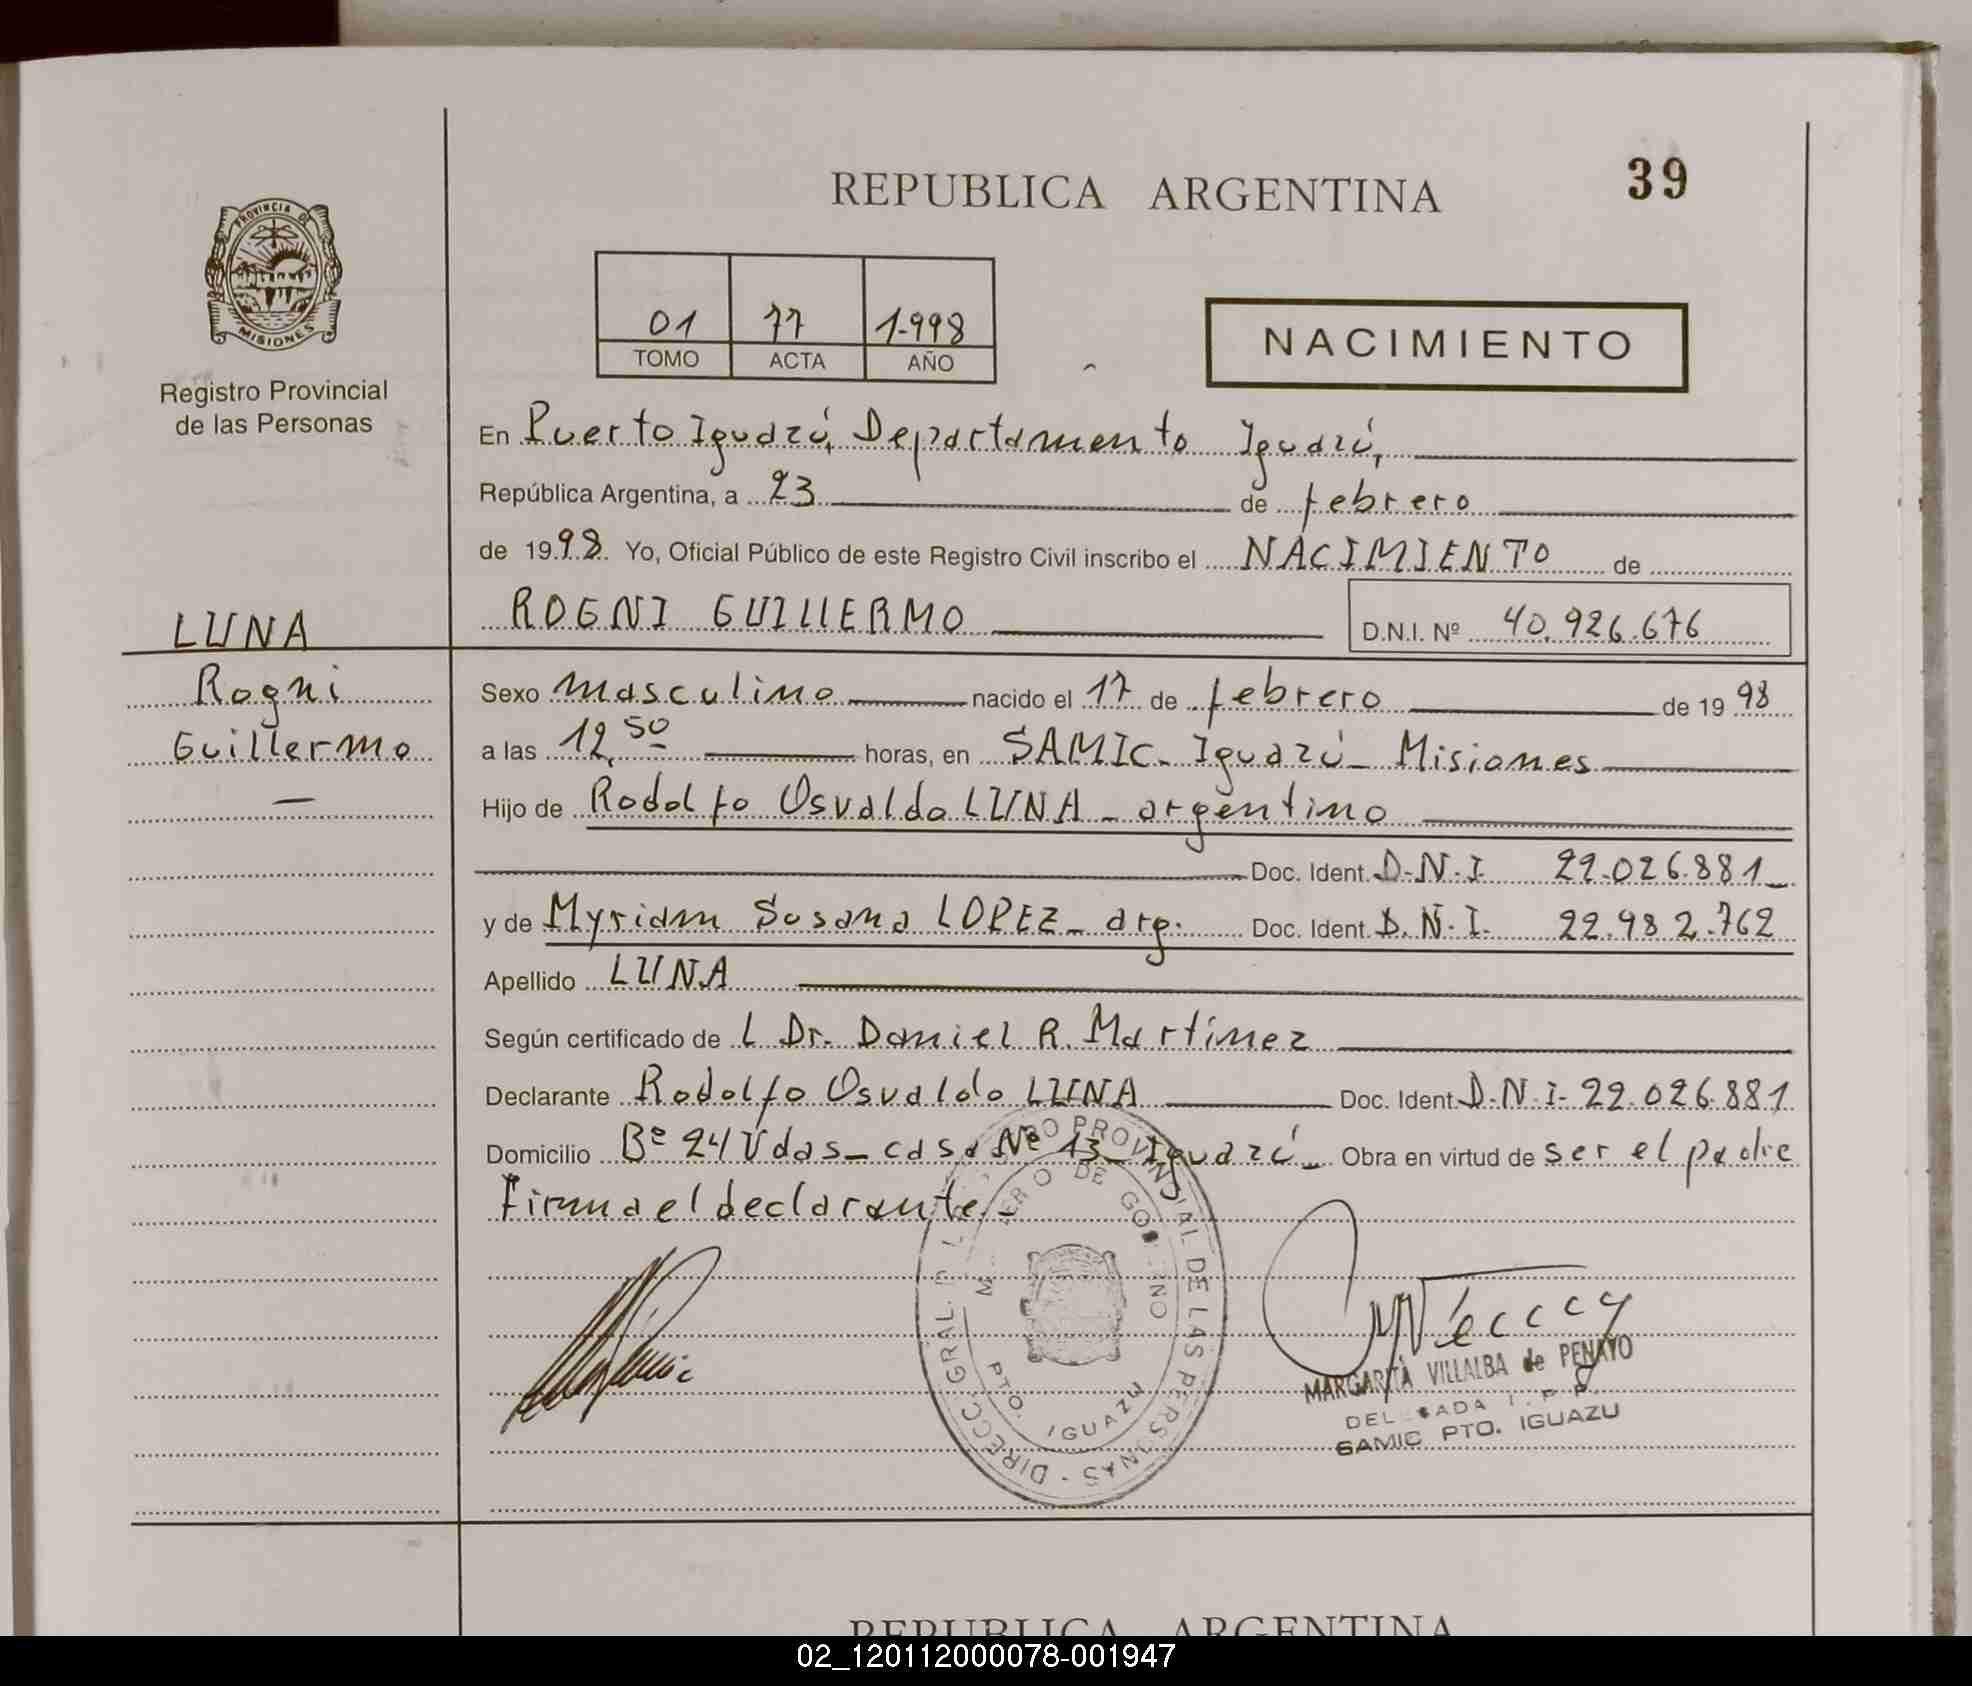 REPUBLICA ARGENTINA
39
PROVINCIA DE
MISIONES
Registro Provincial
de las Personas
01 77 1.998
TOMO ACTA AÑO
NACIMIENTO
En Puerto Iguazú, Departamento Iguazú,
República Argentina, a 23 de febrero
de 1998. Yo, Oficial Público de este Registro Civil inscribo el NACIMIENTO de
LUNA
ROGNI GUILLERMO D.N.I. Nº 40.926.676
Rogni
Guillermo
Sexo masculino nacido el 17 de febrero de 1998
a las 12,50 horas, en SAMIC - Iguazú - Misiones
Hijo de Rodolfo Osvaldo LUNA - argentino
Doc. Ident. D.N.I. 22.026.881
y de Myriam Susana LOPEZ - arg. Doc. Ident. D.N.I. 22.982.762
Apellido LUNA
Según certificado de l Dr. Daniel R. Martínez
Declarante Rodolfo Osvaldo LUNA Doc. Ident. D.N.I. 22.026.881
Domicilio Bº 24 Vdas - casa Nº 13 - Iguazú - Obra en virtud de ser el padre
Firma el declarante -
PROVINCIAL DE LAS PERSONAS - DIRECC GRAL. D
DE GOBIERNO
PTO. IGUAZU
MARGARITA VILLALBA de PENAYO
SAMIC PTO. IGUAZU
REPUBLICA ARGENTINA
02_120112000078-001947